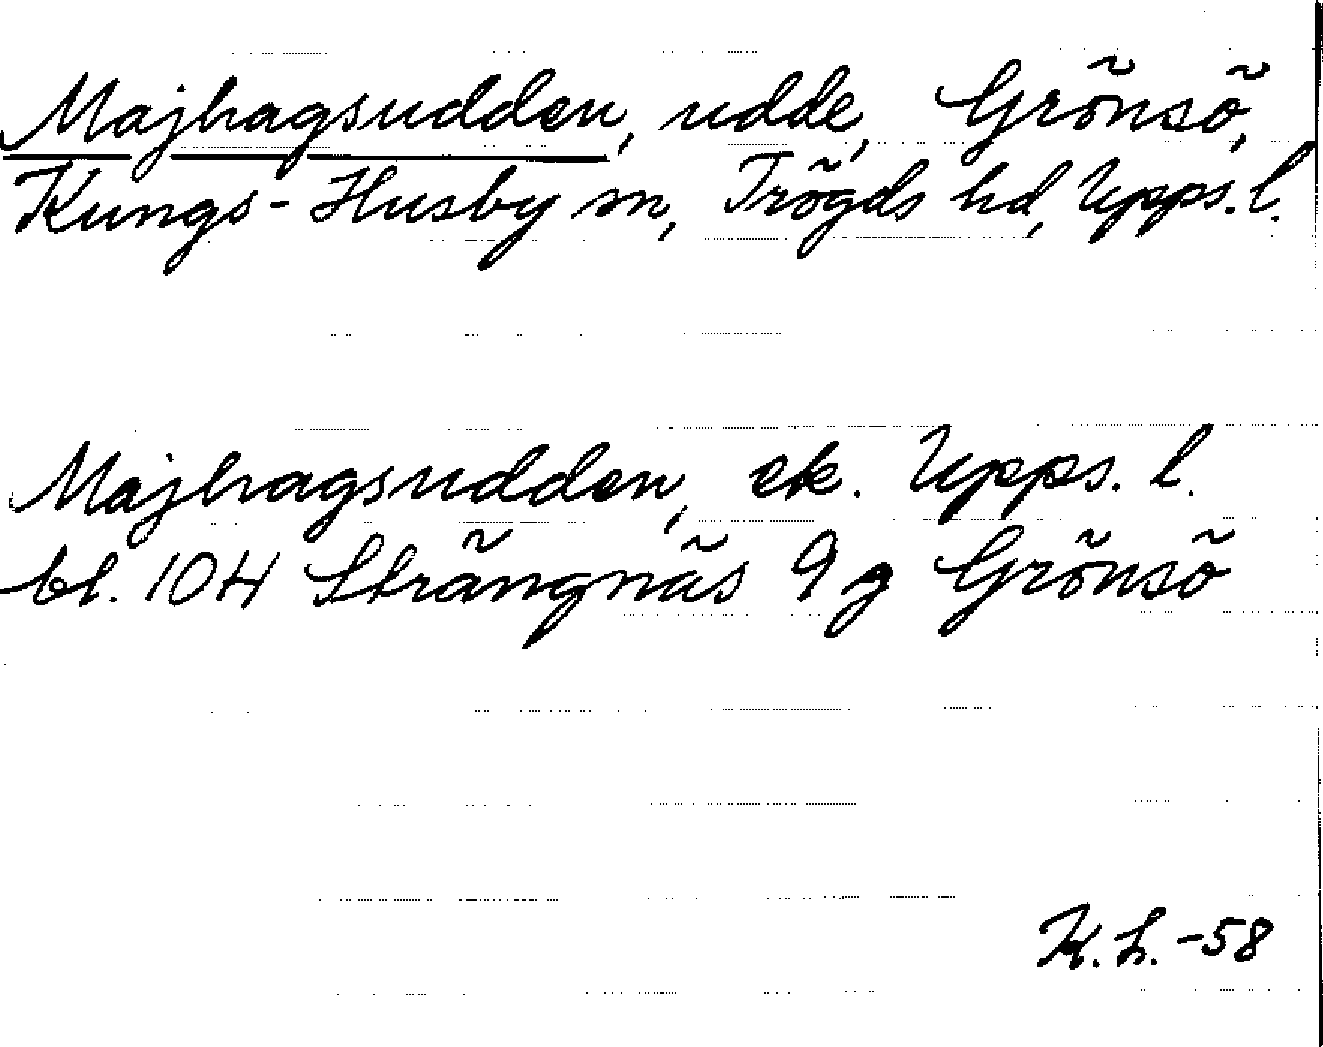 Majhagsudden, udde, Grönsö,
Kungs-Husby sn, Trögds hd, Upps. l.
Majhagsudden, ek. Upps. l.
bl. 10H Strängnäs 9 g Grönsö
K. L. -58